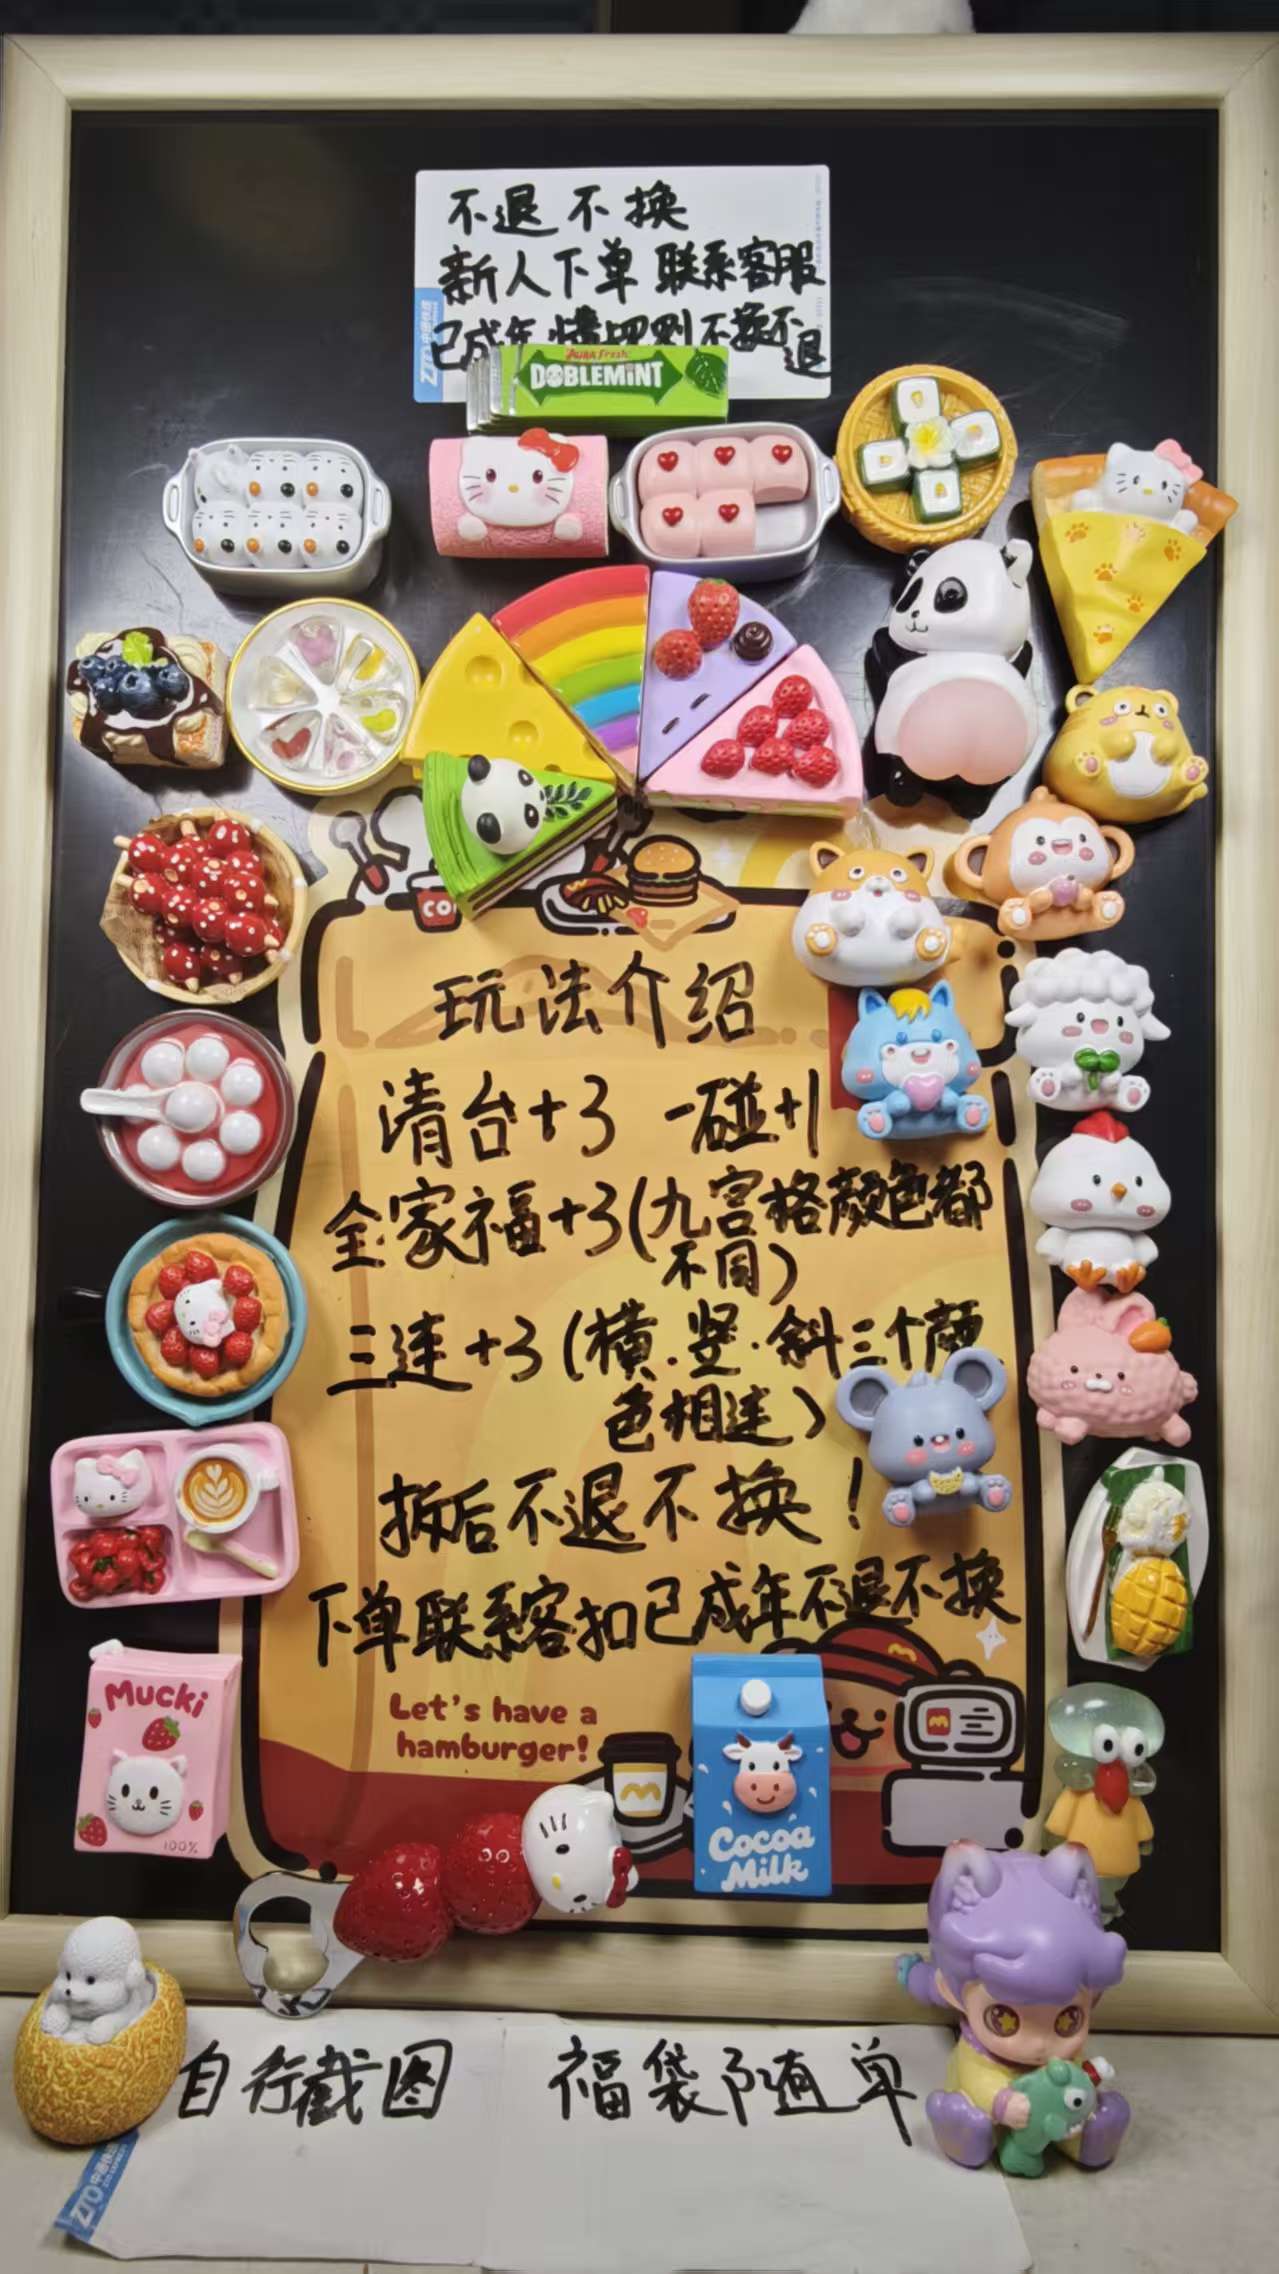 不退不换
新人下单 联系客服
已成年 不换不退
Aura Fresh
DOBLEMINT
玩法介绍
清台+3 一碰+1
全家福+3(九宫格颜色都
不同)
三连+3(横.竖.斜三个颜
色相连)
拆后不退不换!
下单联系客扣已成年不退不换
Mucki
100%
Let's have a
hamburger!
Cocoa
Milk
自行截图 福袋随单
ZTO中通快递